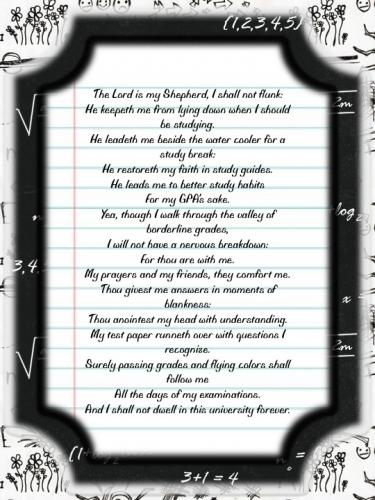 {1,2,3,4,5}
The Lord is my Shepherd, I shall not flunk:
He keepeth me from lying down when I should
be studying.
He leadeth me beside the water cooler for a
study break:
He restoreth my faith in study guides.
He leads me to better study habits
For my GPA's sake.
Yea, though I walk through the valley of
borderline grades,
I will not have a nervous breakdown:
For thou are with me.
My prayers and my friends, they comfort me.
Thou givest me answers in moments of
blankness:
Thou anointest my head with understanding.
My test paper runneth over with questions I
recognise.
Surely passing grades and flying colors shall
follow me
All the days of my examinations.
And I shall not dwell in this university forever.
3+1 = 4